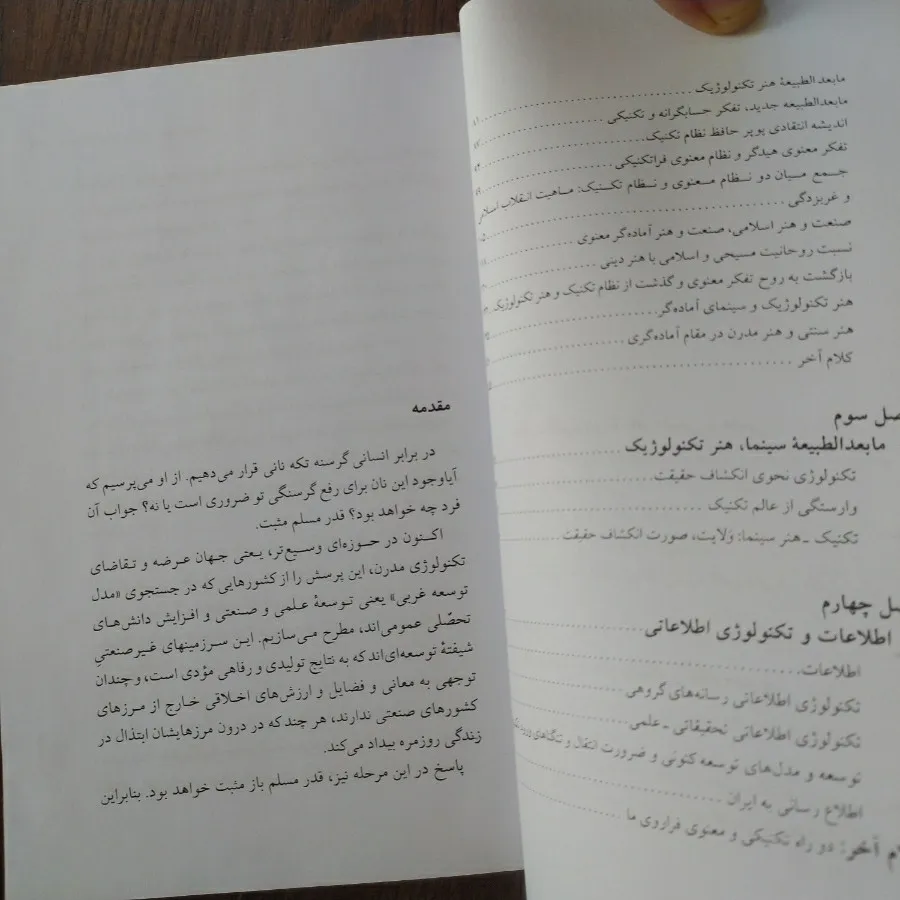 مابعدالطبیعهٔ هنر تکنولوژیک
مابعدالطبیعه جدید، تفکر حسابگرانه و تکنیکی
اندیشه انتقادی پوپر حافظ نظام تکنیک
تفکر معنوی هیدگر و نظام معنوی فراتکنیکی
جمع میان دو نظام معنوی و نظام تکنیک: ماهیت انقلاب
و غربزدگی
صنعت و هنر اسلامی، صنعت و هنر آماده‌گر معنوی
نسبت روحانیت مسیحی و اسلامی با هنر دینی
بازگشت به روح تفکر معنوی و گذشت از نظام تکنیک و هنر تکنولوژیک
هنر تکنولوژیک و سینمای آماده‌گر
هنر سنتی و هنر مدرن در مقام آماده‌گری
کلام آخر
سوم
مابعدالطبیعهٔ سینما، هنر تکنولوژیک
تکنولوژی نحوی انکشاف حقیقت
وارستگی از عالم تکنیک
تکنیک ـ هنر سینما: ولایت، صورت انکشاف حقیقت
چهارم
اطلاعات و تکنولوژی اطلاعاتی
اطلاعات
تکنولوژی اطلاعاتی رسانه‌های گروهی
تکنولوژی اطلاعاتی تحقیقاتی ـ علمی
توسعه و مدل‌های توسعه کنونی و ضرورت انتقال و
اطلاع رسانی به ایران
آخر: دو راه تکنیکی و معنوی فراروی ما
مقدمه
در برابر انسانی گرسنه تکه نانی قرار می‌دهیم. از او می‌پرسیم که
آیاوجود این نان برای رفع گرسنگی تو ضروری است یا نه؟ جواب آن
فرد چه خواهد بود؟ قدر مسلم مثبت.
اکنون در حوزه‌ای وسیع‌تر، یعنی جهان عرضه و تقاضای
تکنولوژی مدرن، این پرسش را از کشورهایی که در جستجوی «مدل
توسعه غربی» یعنی توسعهٔ علمی و صنعتی و افزایش دانش‌های
تحصّلی عمومی‌اند، مطرح می‌سازیم. این سرزمینهای غیرصنعتی
شیفتهٔ توسعه‌ای‌اند که به نتایج تولیدی و رفاهی مؤدی است، و چندان
توجهی به معانی و فضایل و ارزش‌های اخلاقی خارج از مرزهای
کشورهای صنعتی ندارند، هر چند که در درون مرزهایشان ابتذال در
زندگی روزمره بیداد می‌کند.
پاسخ در این مرحله نیز، قدر مسلم باز مثبت خواهد بود. بنابراین